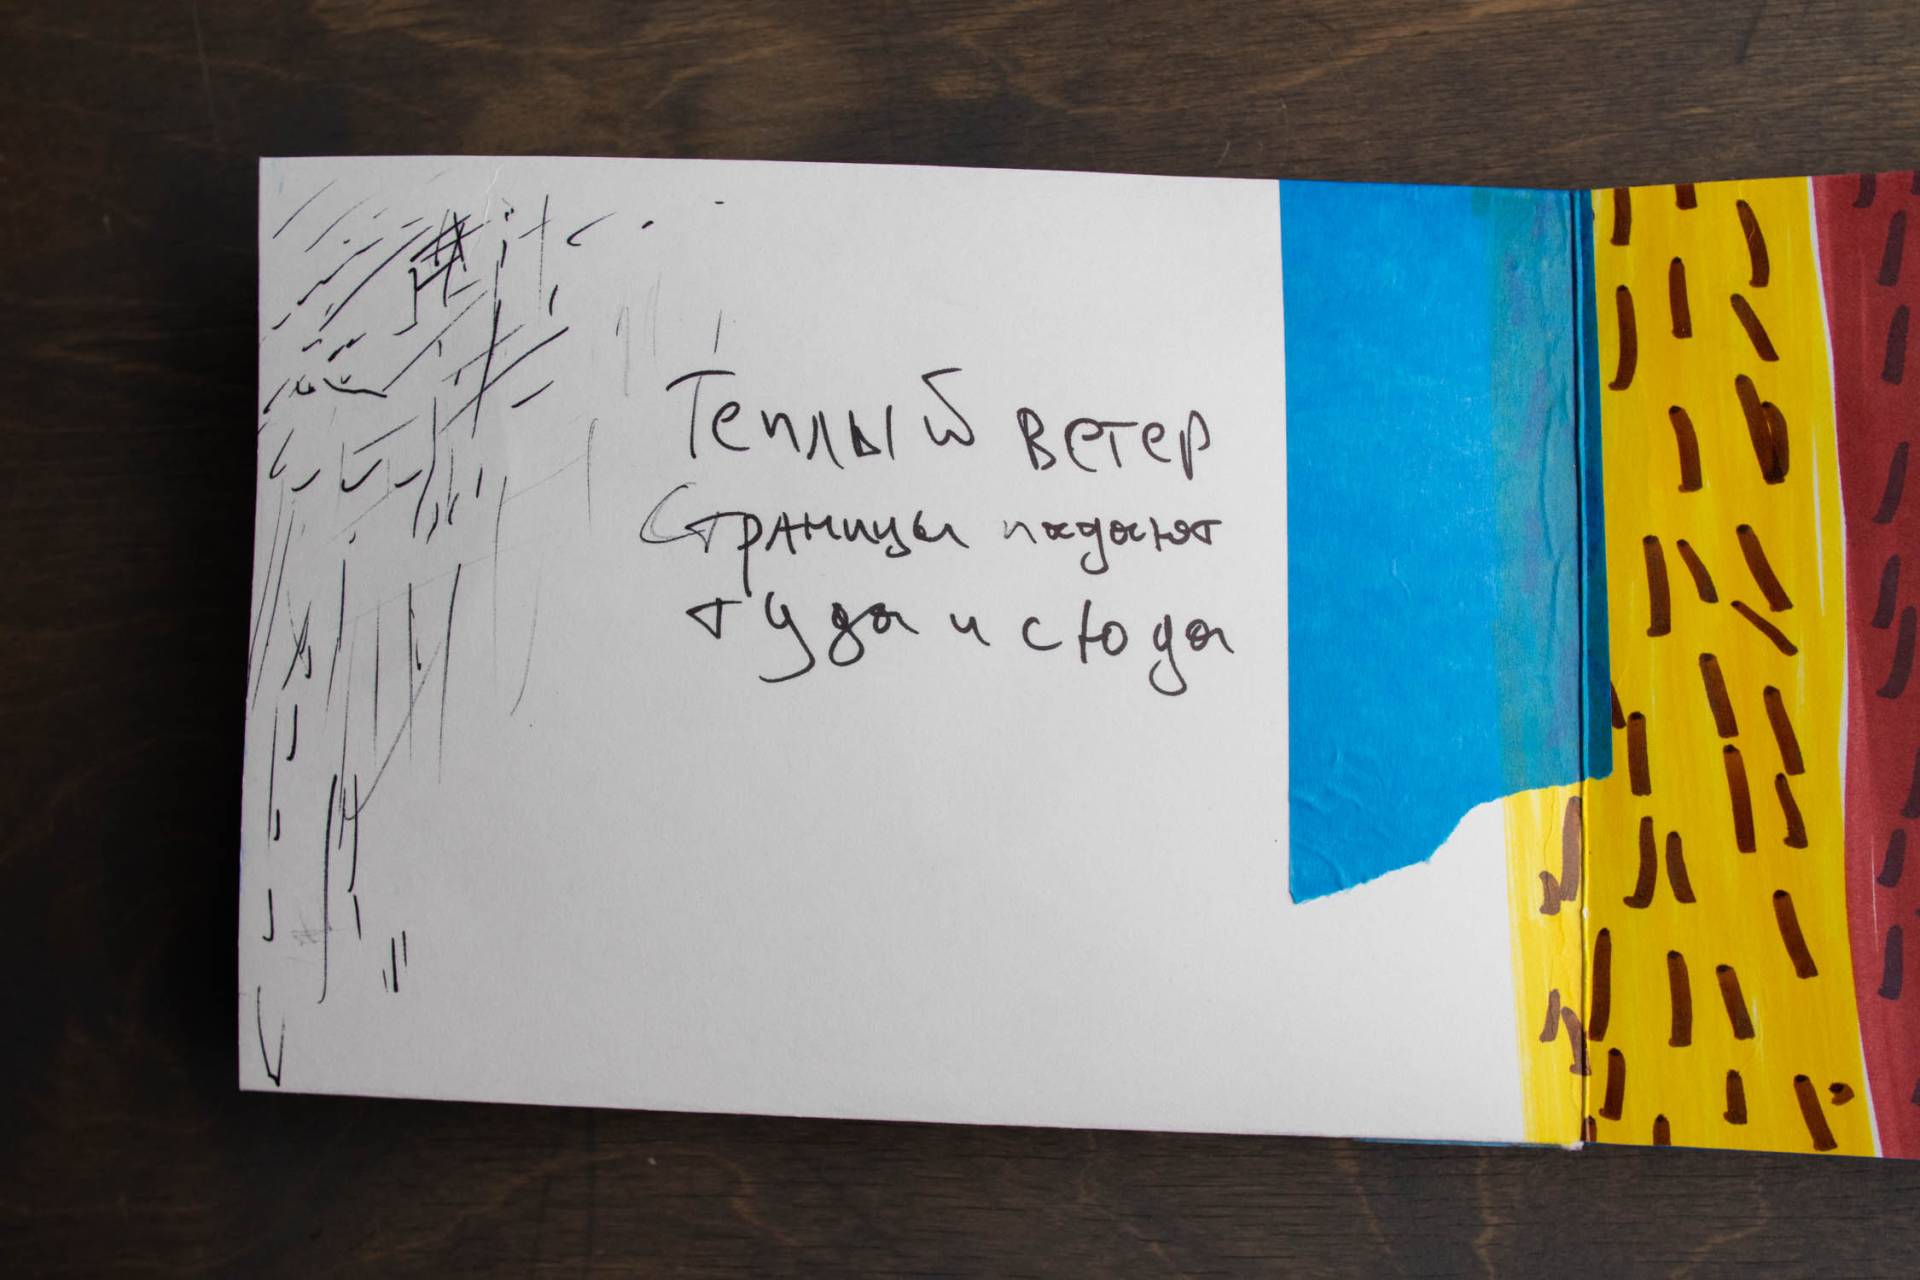 Теплый ветер
Страницы падают
туда и сюда